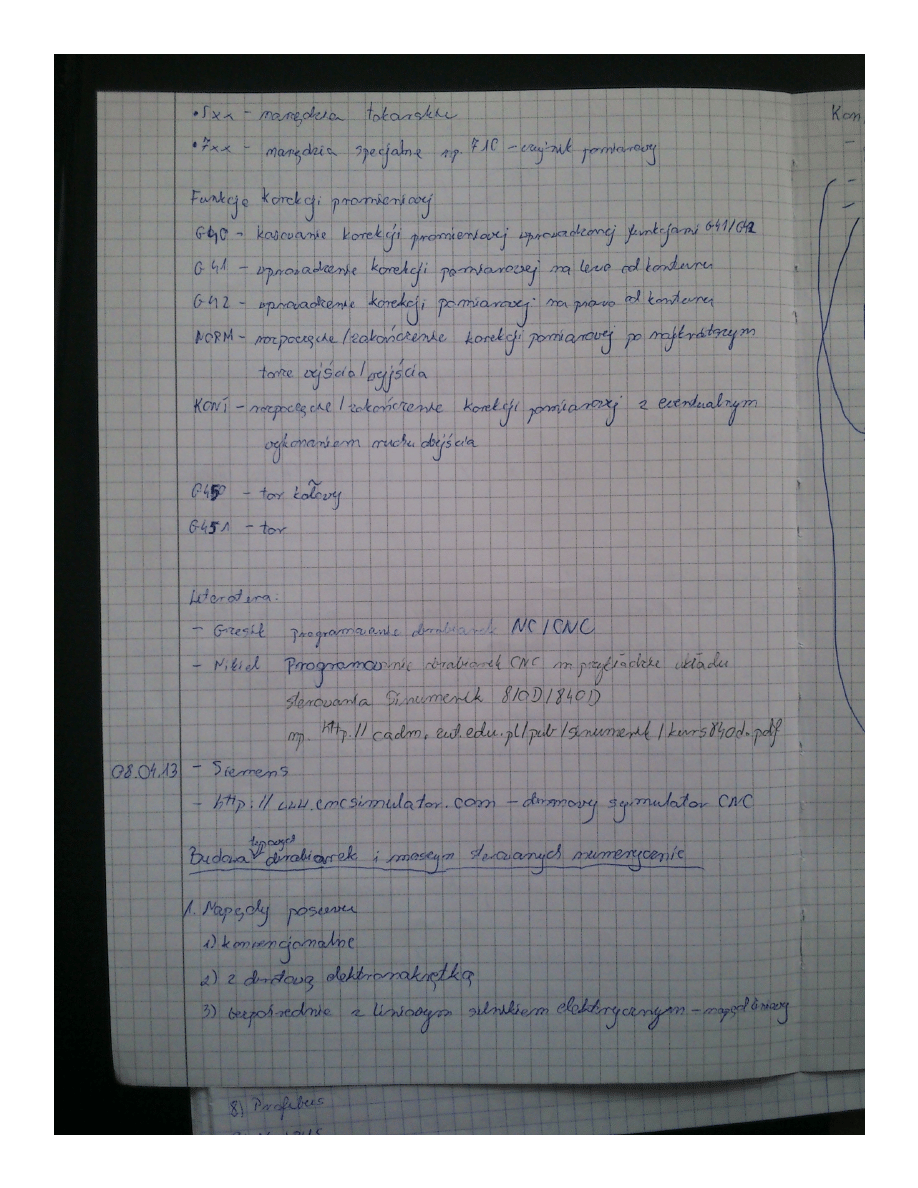 • 5xx – narzędzia tokarskie
• 7xx – narzędzia specjalne np. 710 – czujnik pomiarowy
Funkcje korekcji promieniowej
G40 – kasowanie korekcji promieniowej wprowadzonej funkcjami G41/G42
G41 – wprowadzenie korekcji pomiarowej na lewo od konturu
G42 – wprowadzenie korekcji pomiarowej na prawo od konturu
NORM – rozpoczęcie/zakończenie korekcji pomiarowej po najkrótszym
torze wejścia/wyjścia
KONT – rozpoczęcie/zakończenie korekcji pomiarowej z ewentualnym
wykonaniem ruchu obejścia
G450 – tor kołowy
G451 – tor
Literatura:
– Grzesik programowanie obrabiarek NC/CNC
– Nikiel Programowanie obrabiarek CNC na przykładzie układu
sterowania Sinumerik 810D/840D
np. http://cadm.
08.04.13 – Siemens
– http://www.cncsimulator.com – darmowy symulator CNC
Budowa obrabiarek i maszyn sterowanych numerycznie
1. Napędy posuwu
1) konwencjonalne
2) z obrotową elektronakrętką
3) bezpośrednie z liniowym silnikiem elektrycznym – napęd liniowy
8) Profibus
Kon